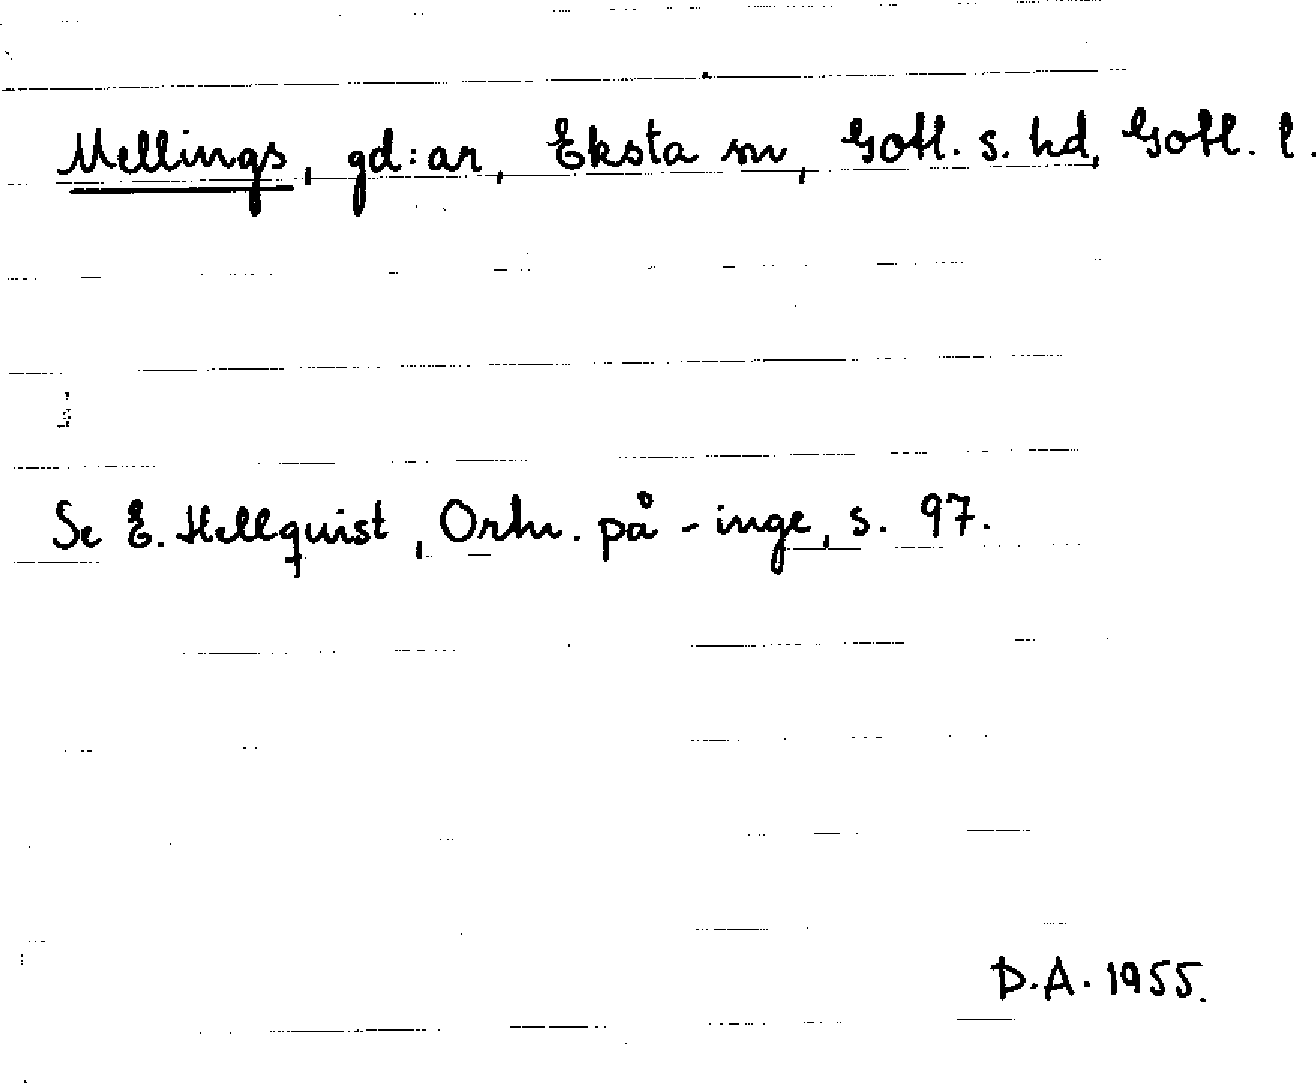 Mellings, gd:ar, Eksta sn, Gotl. s. hd, Gotl. l.
Se E. Hellquist, Ortn. på -inge, s. 97.
D.A. 1955.